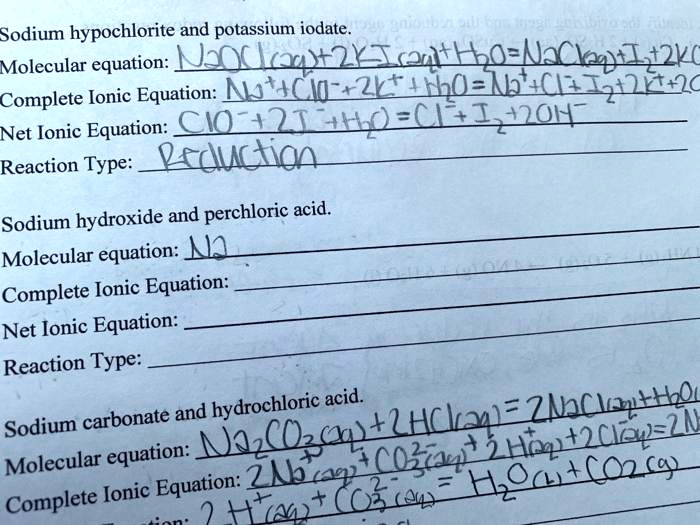 Sodium hypochlorite and potassium iodate.
Molecular equation: NaOCl(aq)+2KI(aq)+H₂O=NaCl(aq)+I₂+2KO
Complete Ionic Equation: Na⁺+ClO⁻+2K⁺+H₂O=Na⁺+Cl⁻+I₂+2K⁺+2O
Net Ionic Equation: ClO⁻+2I⁻+H₂O=Cl⁻+I₂+2OH⁻
Reaction Type: Reduction
Sodium hydroxide and perchloric acid.
Molecular equation: Na
Complete Ionic Equation:
Net Ionic Equation:
Reaction Type:
Sodium carbonate and hydrochloric acid.
Molecular equation: Na₂CO₃(aq)+2HCl(aq)=2NaCl(aq)+H₂O(
Complete Ionic Equation: 2Na⁺(aq)+CO₃²⁻(aq)+2H⁺(aq)+2Cl⁻(aq)=2N
2H⁺(aq)+CO₃²⁻(aq)=H₂O(l)+CO₂(g)